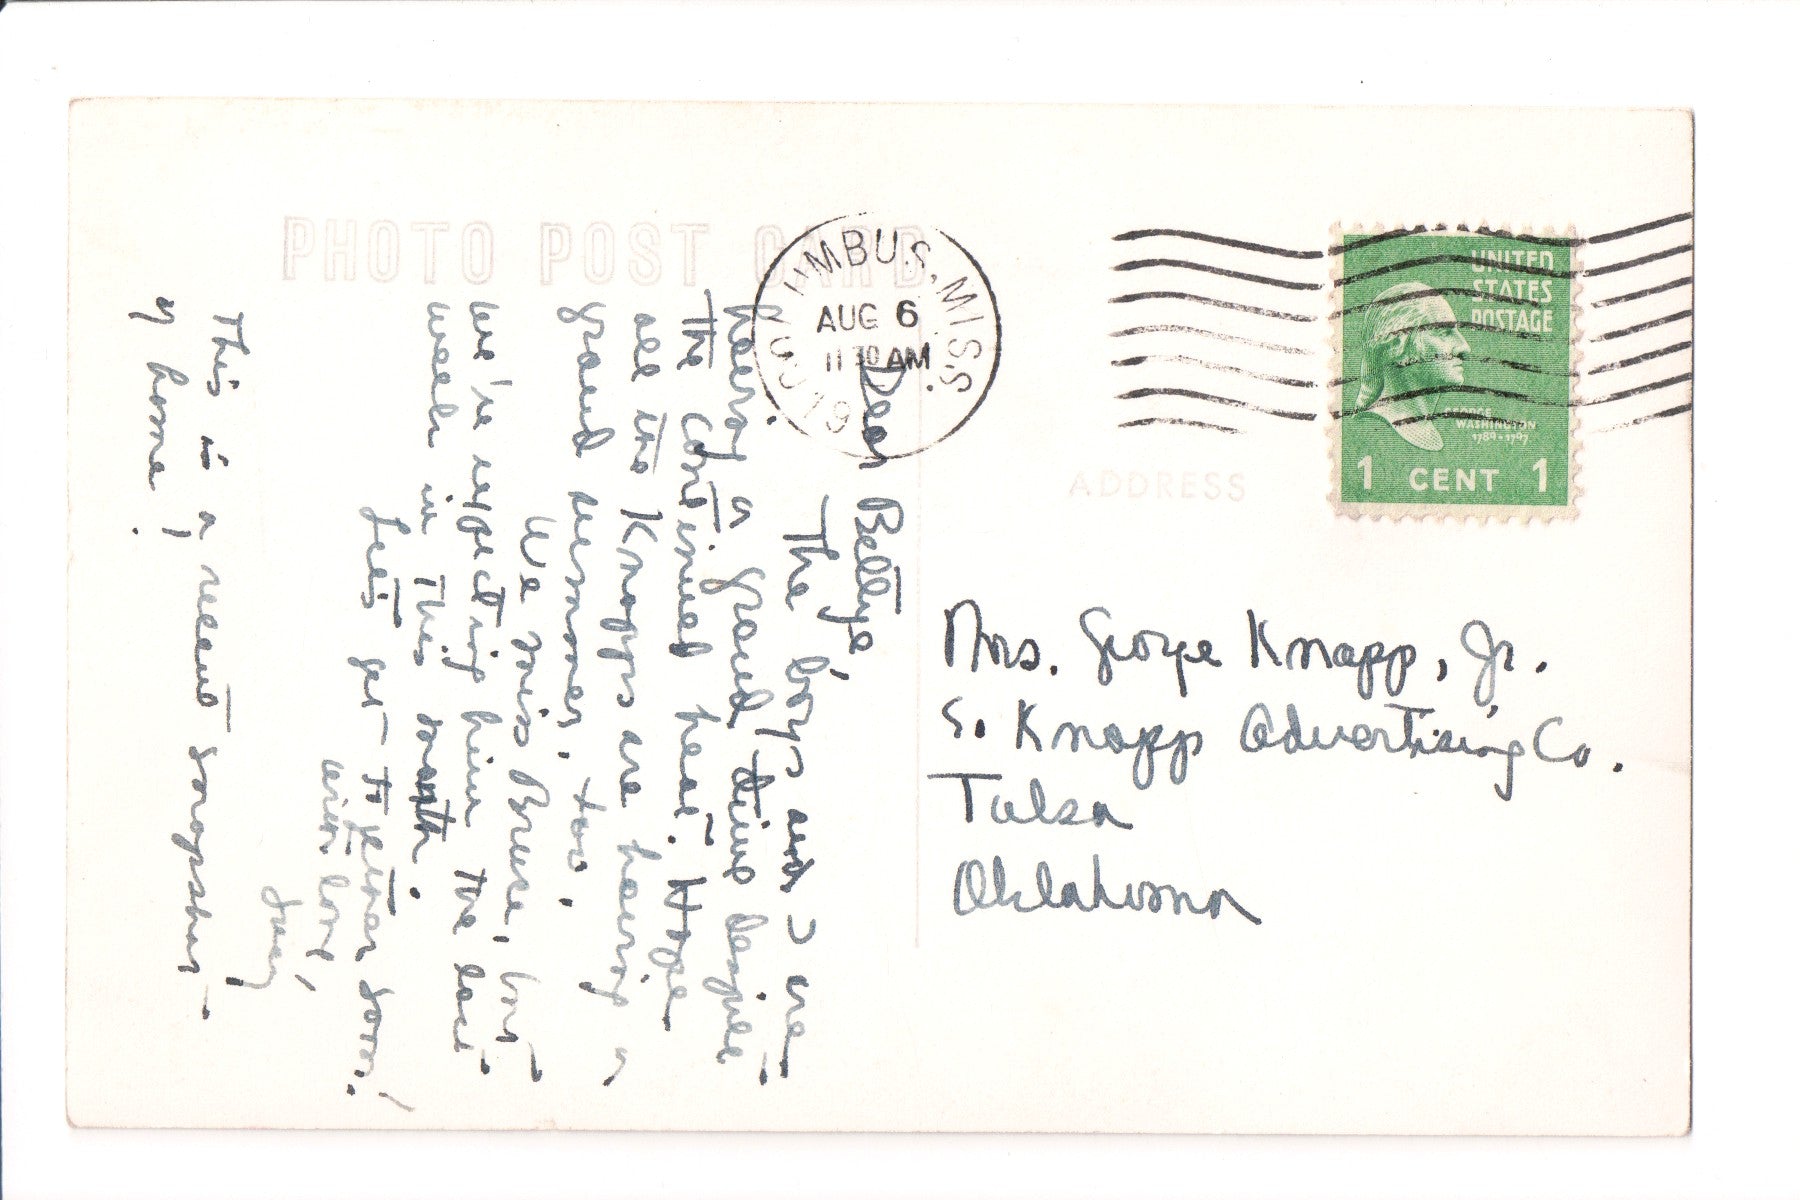 PHOTO POST CARD
COLUMBUS, MISS.
AUG 6
11 30 AM
19
UNITED
STATES
POSTAGE
WASHINGTON
1789-1797
1 CENT 1
ADDRESS
Dear Bettye,
The boys and I are
having a grand time despite
the continued heat. Hope
all the Knapps are having a
grand summer, too.
We miss Bruce, but
we're expecting him the last
week in this month.
Let's get together soon!
with love,
This is a recent snapshot
of home!
Mrs. George Knapp, Jr.
Knapp Advertising Co.
Tulsa
Oklahoma